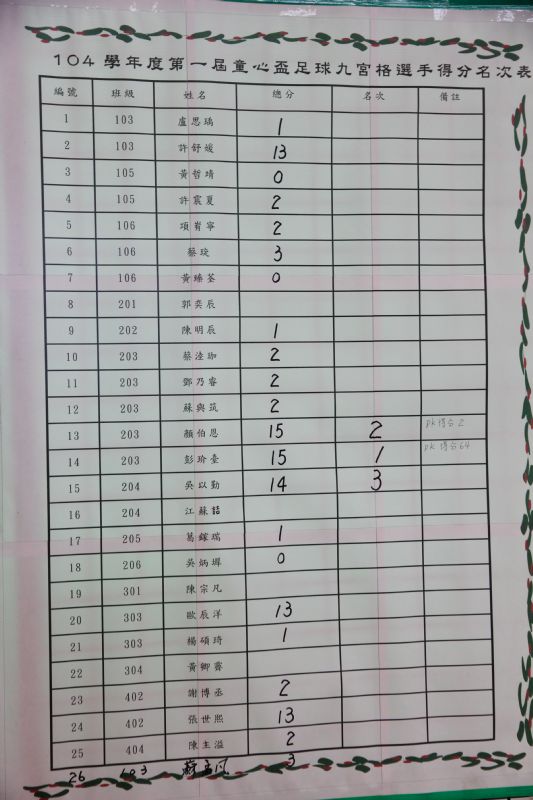 104學年度第一屆童心盃足球九宮格選手得分名次表
編號 班級 姓名 總分 名次 備註
1 103 盧思瑀 1
2 103 許舒媛 13
3 105 黃哲靖 0
4 105 許震夏 2
5 106 項甯寧 2
6 106 蔡琁 3
7 106 黃臻荃 0
8 201 郭奕辰
9 202 陳明辰 1
10 203 蔡淕珈 2
11 203 鄧乃睿 2
12 203 蘇與筑 2
13 203 顏伯恩 15 2 PK得分2
14 203 彭玠臺 15 1 PK得分64
15 204 吳以勤 14 3
16 204 江蘇喆
17 205 葛鎵瑞 1
18 206 吳炳墀 0
19 301 陳宗凡
20 303 歐辰洋 13
21 303 楊碩琦 1
22 304 黃卿睿
23 402 謝博丞 2
24 402 張世熙 13
25 404 陳主溢 2
26 403 蘇 凡 3